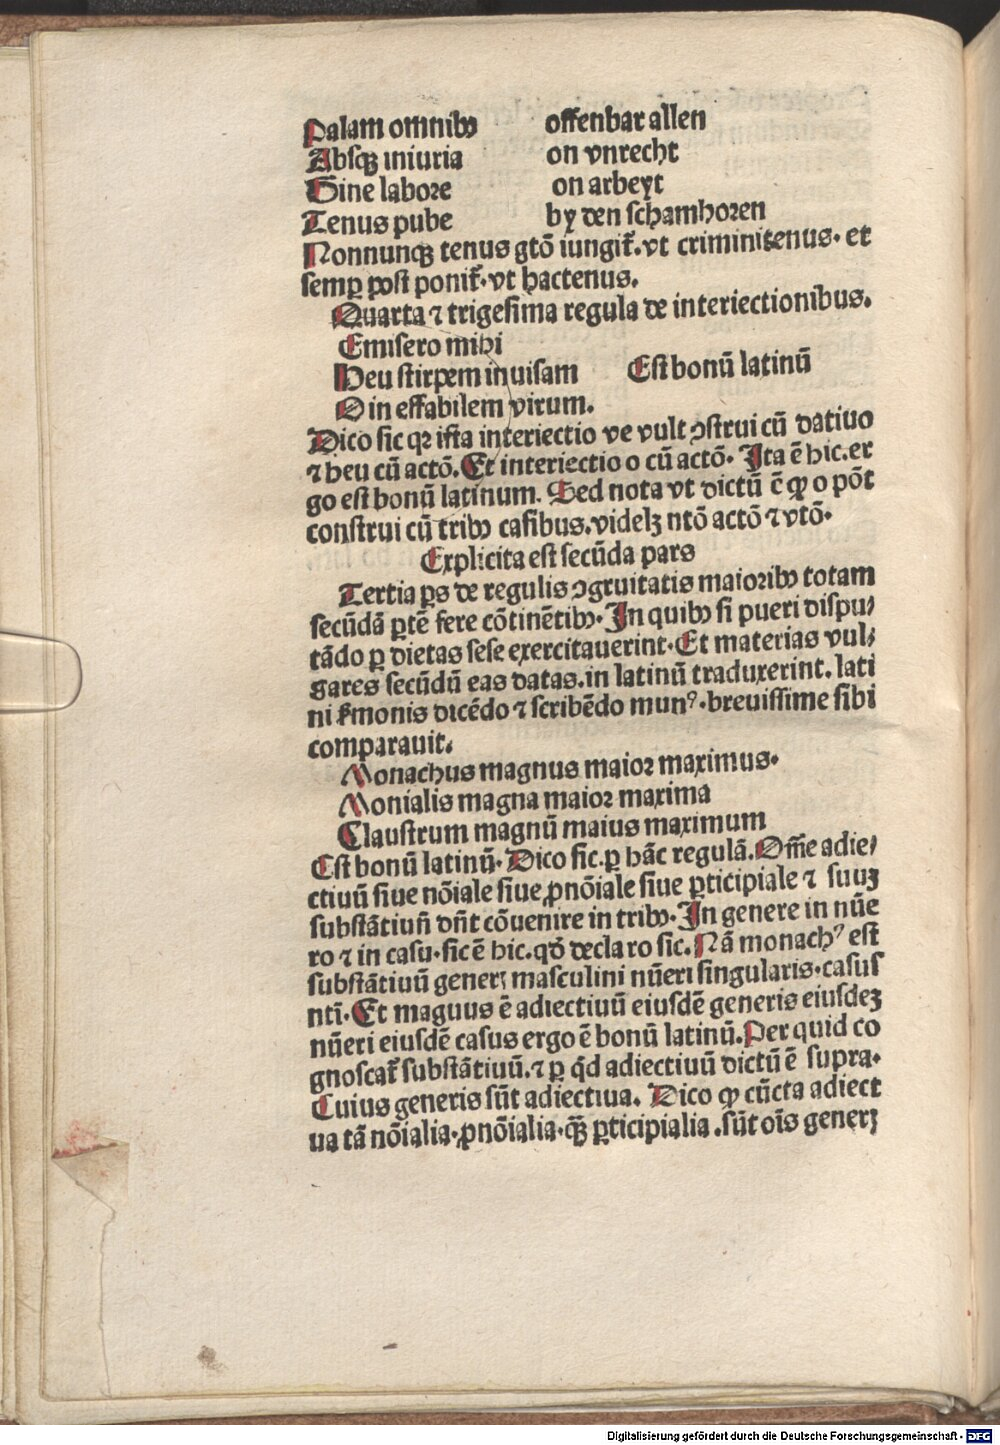 Palam omnibꝰ offenbar allen
Absqꝫ iniuria on vnrecht
Sine labore on arbeyt
Tenus pube by den schamhoren
Nonnunqꝫ tenus gtō iungit̄. vt criminitenus. et
semp̲ post ponit̄. vt hactenus.
Quarta ⁊ trigesima regula de interiectionibus.
Emisero mihi
Heu stirpem inuisam Est bonū latinū
O in effabilem virum.
Dico sic qꝛ ista interiectio ve vult ꝯstrui cū datiuo
⁊ heu cū actō. Et interiectio o cū actō. Ita ē hic. er
go est bonū latinum. Sed nota vt dictū ē ꝙ o pōt
construi cū tribꝰ casibus. videlꝫ ntō actō ⁊ vtō.
Explicita est secūda pars
Tertia ꝑs de regulis ꝯgruitatis maioribꝰ totam
secūdā ꝑtē fere cōtinētibꝰ. In quibꝰ si pueri dispu⸗
tādo ꝑ dietas sese exercitauerint. Et materias vul⸗
gares secūdū eas datas. in latinū traduxerint. lati
ni s̄monis dicēdo ⁊ scribēdo munꝰ. breuissime sibi
comparauit.
Monachus magnus maior maximus.
Monialis magna maior maxima
Claustrum magnū maius maximum
Est bonū latinū. Dico sic. ꝑ hāc regulā. Om̄e adie⸗
ctiuū siue nōiale siue ꝓnōiale siue ꝑticipiale ⁊ suuꝫ
substātiuū dn̄t cōuenire in tribꝰ. In genere in nūe
ro ⁊ in casu. sic ē hic. qd̄ declaro sic. Nā monachꝰ est
substātiuū generꝭ masculini nūeri singularis. casus
nti. Et magnus ē adiectiuū eiusdē generis eiusdeꝫ
nūeri eiusdē casus ergo ē bonū latinū. Per quid co
gnoscat̄ substātiuū. ⁊ ꝑ qd̄ adiectiuū dictū ē supra.
Cuius generis sūt adiectiua. Dico ꝙ cūcta adiect
ua tā nōialia. ꝓnōialia. qꝫ ꝑticipialia. sūt oīs generꝭ
Digitalisierung gefördert durch die Deutsche Forschungsgemeinschaft - DFG